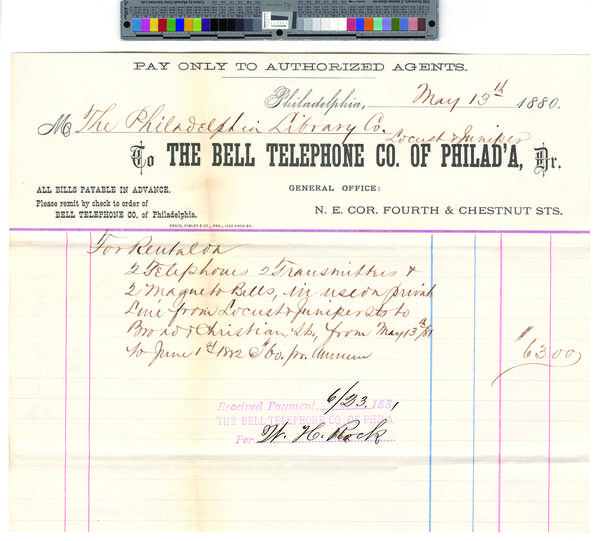 PAY ONLY TO AUTHORIZED AGENTS.
Philadelphia, May 13th 1880.
M The Philadelphia Library Co.
Locust & Juniper
To THE BELL TELEPHONE CO. OF PHILAD'A, Dr.
ALL BILLS PAYABLE IN ADVANCE.
Please remit by check to order of
BELL TELEPHONE CO. of Philadelphia.
GENERAL OFFICE:
N. E. COR. FOURTH & CHESTNUT STS.
CRAIG, FINLEY & CO., PRS., 1020 ARCH ST.
For Rental on
2 Telephones 2 Transmitters &
2 Magneto Bells, in use on private
Line from Locust & Juniper sts to
Broad & Christian Sts, from May 13th/81
to June 1st 1882 $60. per Annum
$63.00
Received Payment, 6/23 1881,
THE BELL TELEPHONE CO. OF PHILA.
Per W. H. Rock